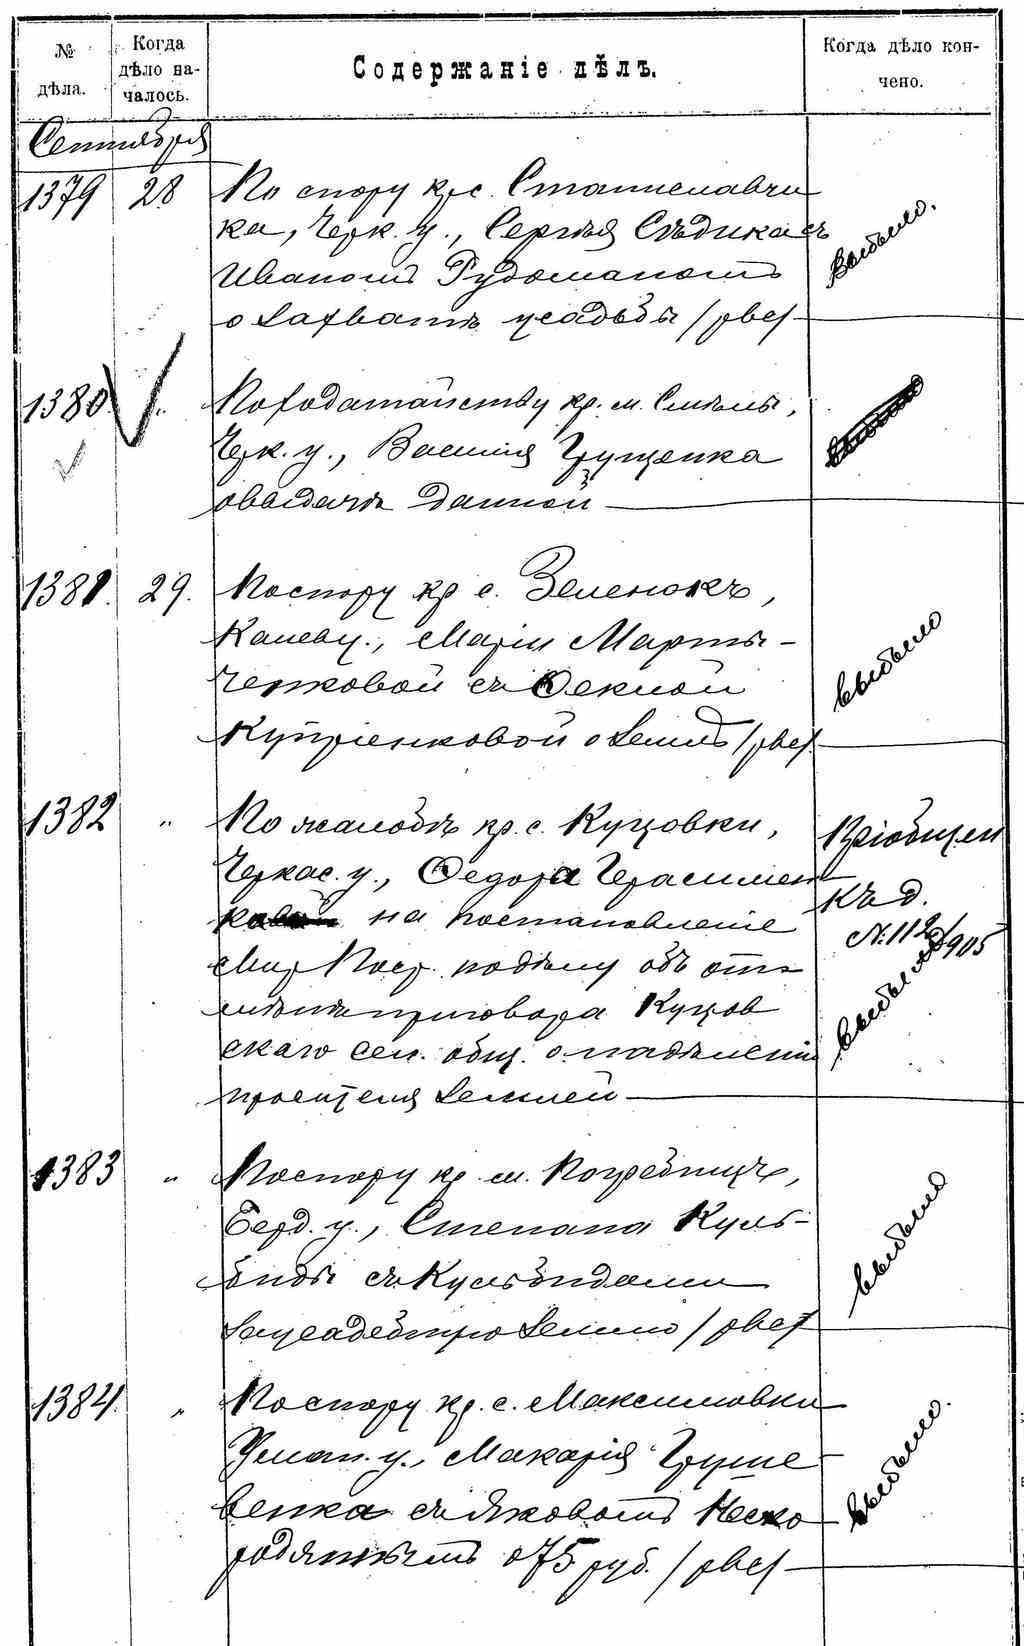 № дѣла.
Когда дѣло на-
чалось.
Содержаніе дѣлъ.
Когда дѣло кон-
чено.
Сентября
1379 28 По спору кр. с. Станиславчи
ка, Черк. у., Сергѣя Сѣдика съ
Иваномъ Рудоманомъ
о захватѣ усадьбы /рев/
выбыло.
1380 „ По ходатайству кр. м. Смѣлы,
Черк. у., Василія Грущенка
о выдачѣ данной
выбыло
1381. 29. По спору кр. с. Зеленокъ,
Канев. у., Маріи Марты-
ченковой съ Ѳеклой
Купріенковой о землѣ /рев/
выбыло
1382 „ По жалобѣ кр. с. Куцовки,
Черкас. у., Ѳедора Герасимен
ка на постановленіе
Мир. Поср. по дѣлу объ от-
мѣнѣ приговора Куцов
скаго сел. общ. о надѣленіи
просителя землей
Пріобщен
къ д.
№ 112/905
выбыло
1383 „ По спору кр. м. Погребищъ,
Берд. у., Степана Куль-
биды съ Кульбидами
за усадебную землю /рев/
выбыло
1384. „ По спору кр. с. Максимовки
Уман. у., Макарія Груше-
венка съ Яковомъ Неско
родянымъ о 75 руб. /рев/
выбыло.